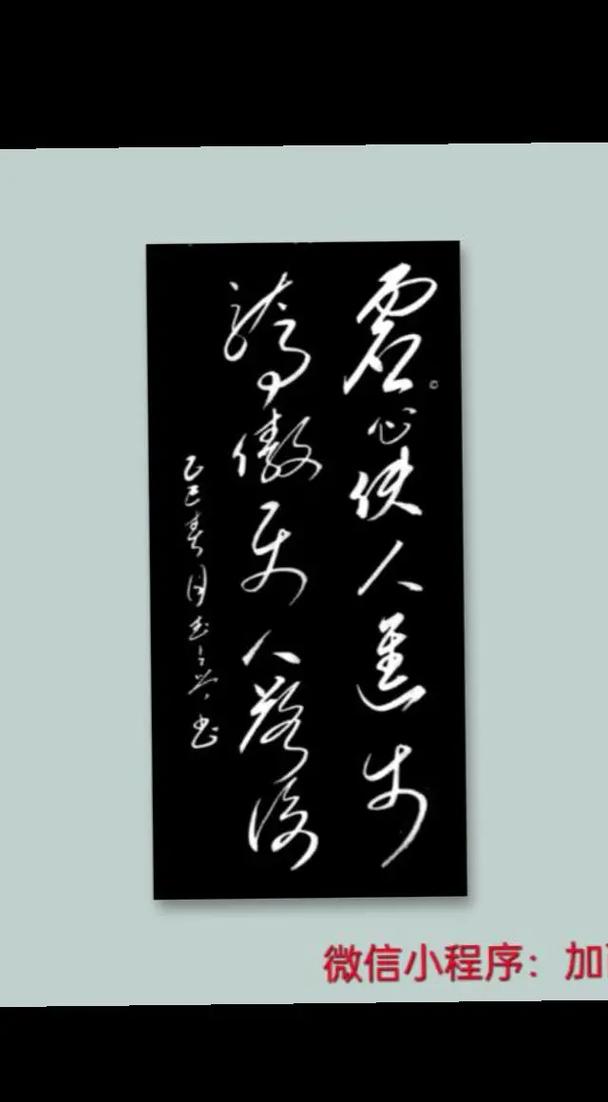 虚心使人進步
驕傲使人落後
乙巳春月
書
微信小程序：加